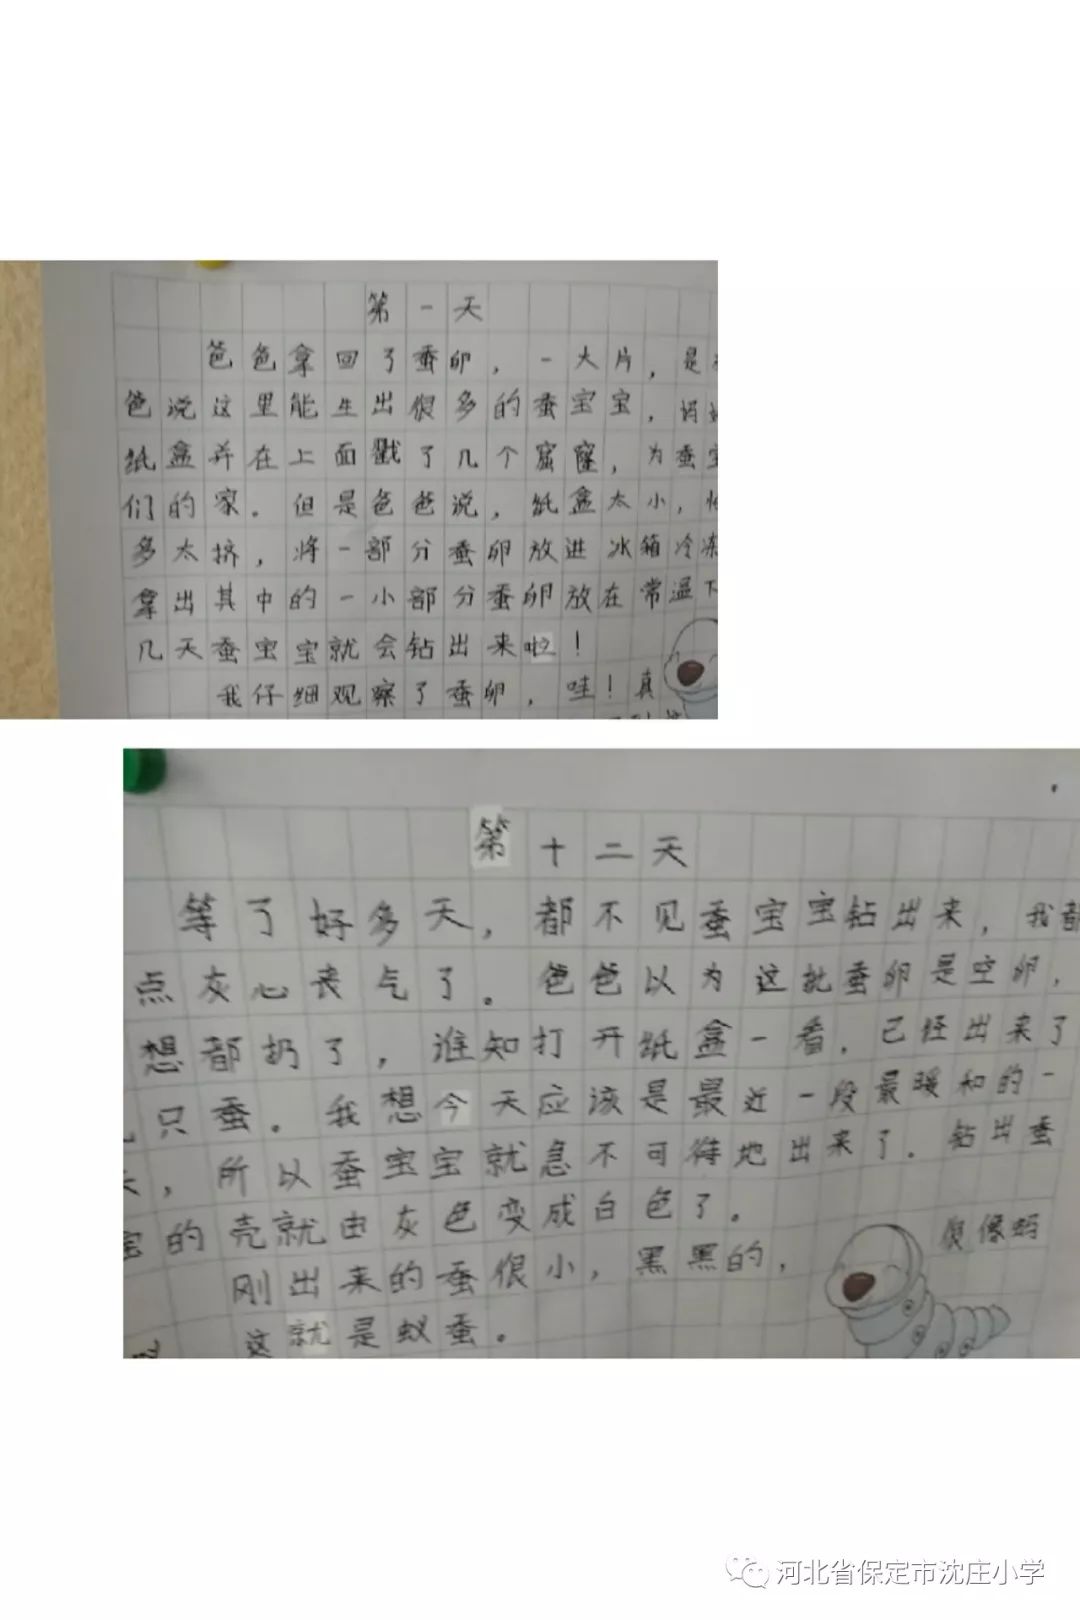 第一天
爸爸拿回了蚕卵，一大片，是
爸说这里能生出很多的蚕宝宝，妈
纸盒并在上面戳了几个窟窿，为蚕宝
们的家。但是爸爸说，纸盒太小，怕
多太挤，将一部分蚕卵放进冰箱冷冻
拿出其中的一小部分蚕卵放在常温下
几天蚕宝宝就会钻出来啦！
我仔细观察了蚕卵，哇！真
第十二天
等了好多天，都不见蚕宝宝钻出来，我都
点灰心丧气了。爸爸以为这批蚕卵是空卵，
想都扔了，谁知打开纸盒一看，已经出来了
只蚕。我想今天应该是最近一段最暖和的一
天，所以蚕宝宝就急不可待地出来了。钻出蚕
宝的壳就由灰色变成白色了。
刚出来的蚕很小，黑黑的，很像蚂
这就是蚁蚕。
河北省保定市沈庄小学